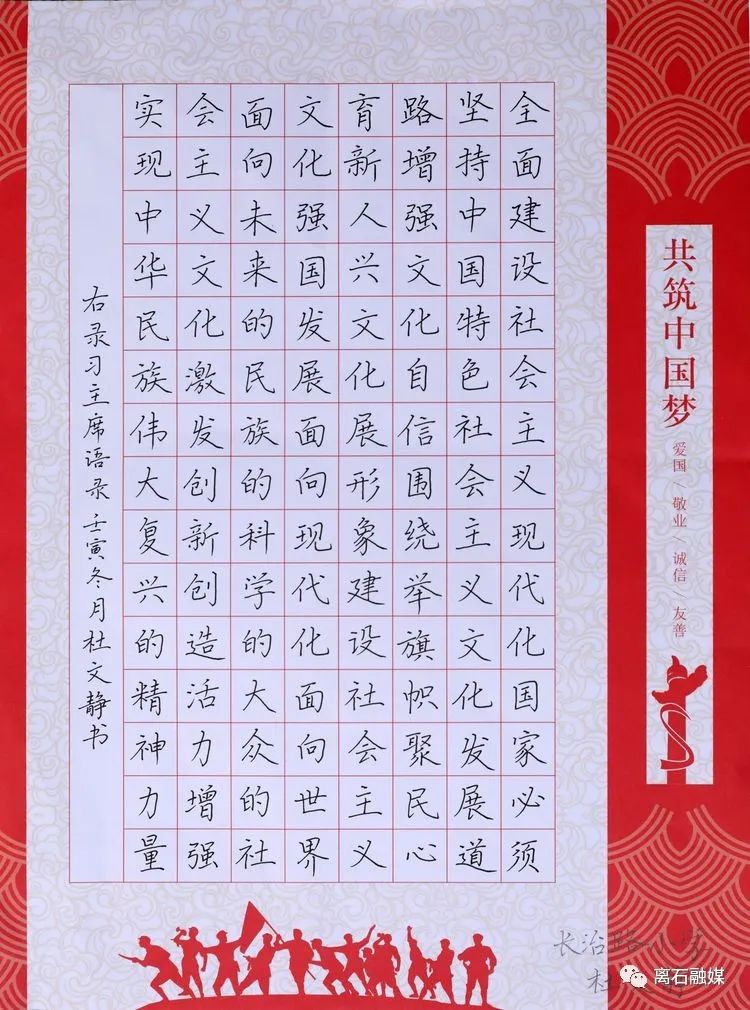 共筑中国梦
爱国/敬业/诚信/友善
全面建设社会主义现代化国家必须
坚持中国特色社会主义文化发展道
路增强文化自信围绕举旗帜聚民心
育新人兴文化展形象建设社会主义
文化强国发展面向现代化面向世界
面向未来的民族的科学的大众的社
会主义文化激发创新创造活力增强
实现中华民族伟大复兴的精神力量
右录习主席语录壬寅冬月杜文静书
长治路小学
杜
离石融媒